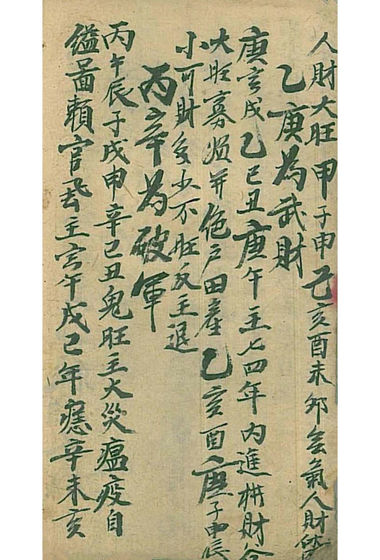 人財大旺甲子申己亥酉未卯主氣人財
乙庚為武財
庚寅戌乙巳丑庚午主七四年内進橫財
大旺寡婦并絶户田產乙亥酉庚子申辰
小可財多少不旺反主退
丙辛為破軍
丙午辰子戌申辛巳丑鬼旺主大災瘟疫自
縊啚賴官主寅午戌己年應辛未亥